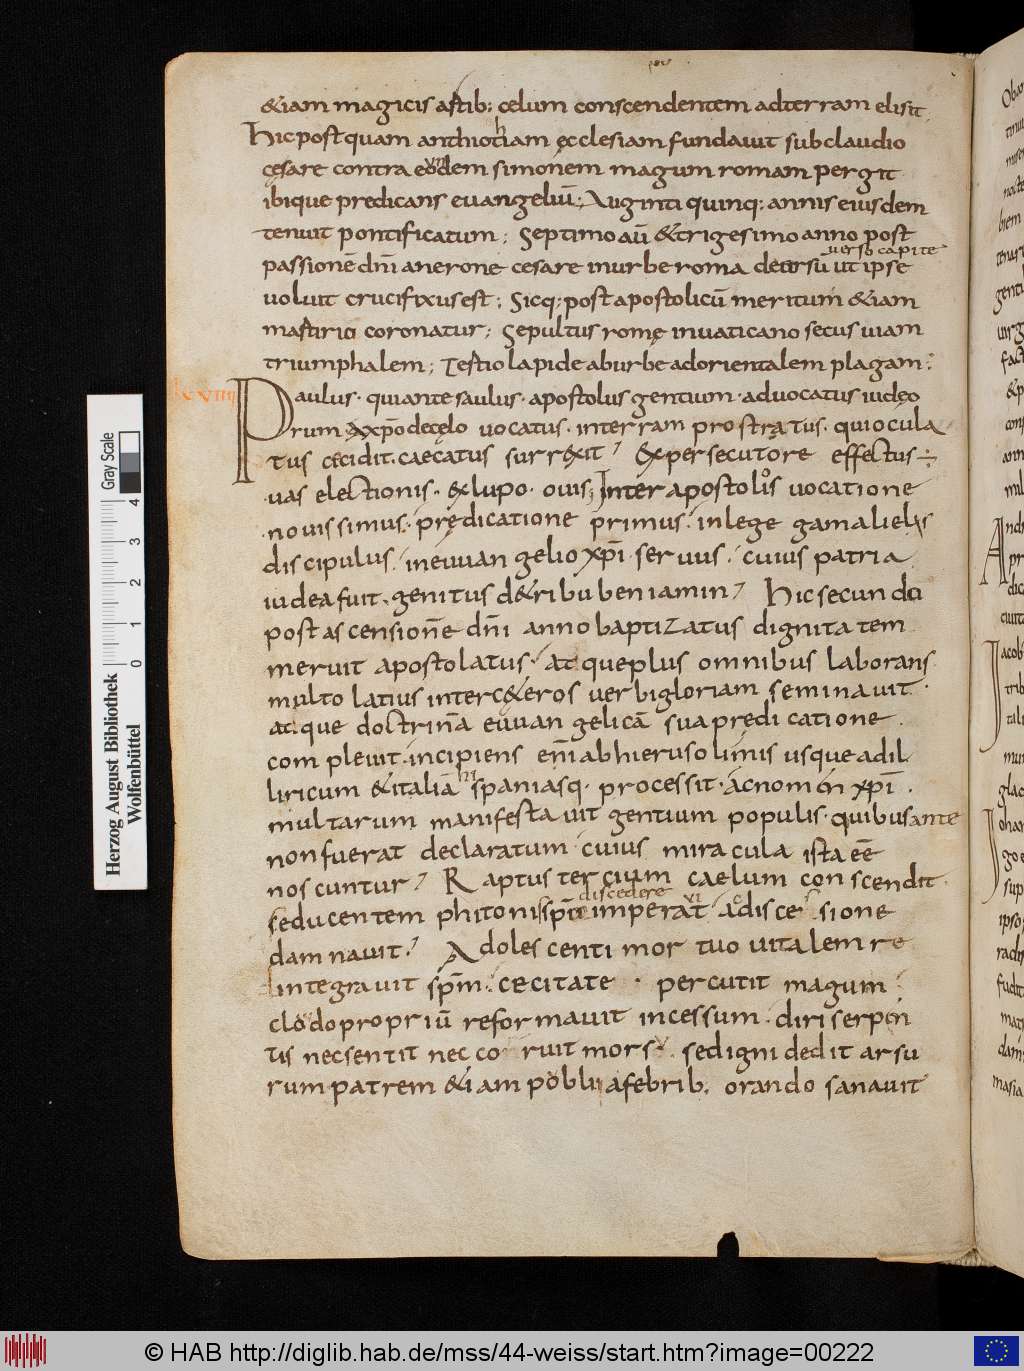 &iam magicis artib; celum conscendentem adterram elisit
hicpostquam anthiochiam ęcclesiam fundauit subclaudio
cęsare contra eundem simonem magum romam pergit
ibique predicans euangeliū; Auginti quinq; annis eiusdem
tenuit pontificatum; Septimo aū &trigesimo anno post
uerso capite
passionē dn̄i anerone cesare inurbe roma deorsū ut ipse
uoluit crucifixus est; Sicq; post apostolicū meritum &iam
martirio coronatur; Sepultus romę inuaticano secus uiam
triumphalem; Tertio lapide aburbe adorientalem plagam;
lxviiii
Paulus· quiante saulus· apostolus gentium· aduocatus iudeo
rum axp̄o decęlo uocatus· interram prostratus· quiocula
tus cecidit· caecatus surrexit? Expersecutore effectus
uas electionis· exlupo· ouis; Inter apostolos uocatione
nouissimus· prędicatione primus· inlege gamalielis
discipulus· ineuuangelio xp̄i· seruus· cuius patria
iudeafuit· genitus detribu beniamin? hic secundo
post ascensionē dn̄i anno baptizatus dignitatem
meruit apostolatus· atqueplus omnibus laborans
multo latius interceteros uerbigloriam seminauit·
atque doctrinā euuangelicā suapredicatione
compleuit· incipiens eni abhierusolimis usque adil
liricum &italiā hispaniasq· processit· acnomen xp̄i·
multarum manifestauit gentium populis· quibusante
nonfuerat declaratum· cuius miracula ista eē
noscuntur? Raptus tercium caelum conscendit
discedere
seducentem phitonis sp̄m imperat adiscessione
damnauit? Adolescenti mortuo uitalem re
integrauit sp̄m· cecitate· percutit magum
clodopropriū reformauit incessum· diri serpen
tis necsentit nec corruit morsu· sedignidedit arsu
rum patrem &iam publii afebrib; orando sanauit
Gray Scale
4 3 2 1 0
Herzog August Bibliothek
Wolfenbüttel
© HAB http://diglib.hab.de/mss/44-weiss/start.htm?image=00222